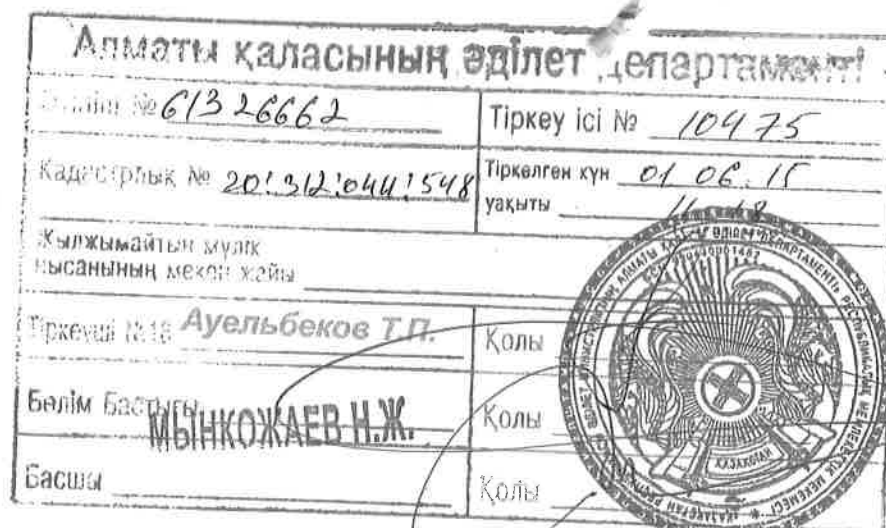 Алматы қаласының әділет департаменті
№ 61326662
Тіркеу ісі № 10475
Кадастрлық № 20:312:044:548
Тіркелген күн 01 06.15
уақыты
Жылжымайтын мүлік
нысанының мекен жайы
Тіркеуші Ауельбеков Т.П.
Қолы
Бөлім Бастығы МЫНКОЖАЕВ Н.Ж.
Қолы
Басшы
Қолы
ҚАЗАҚСТАН